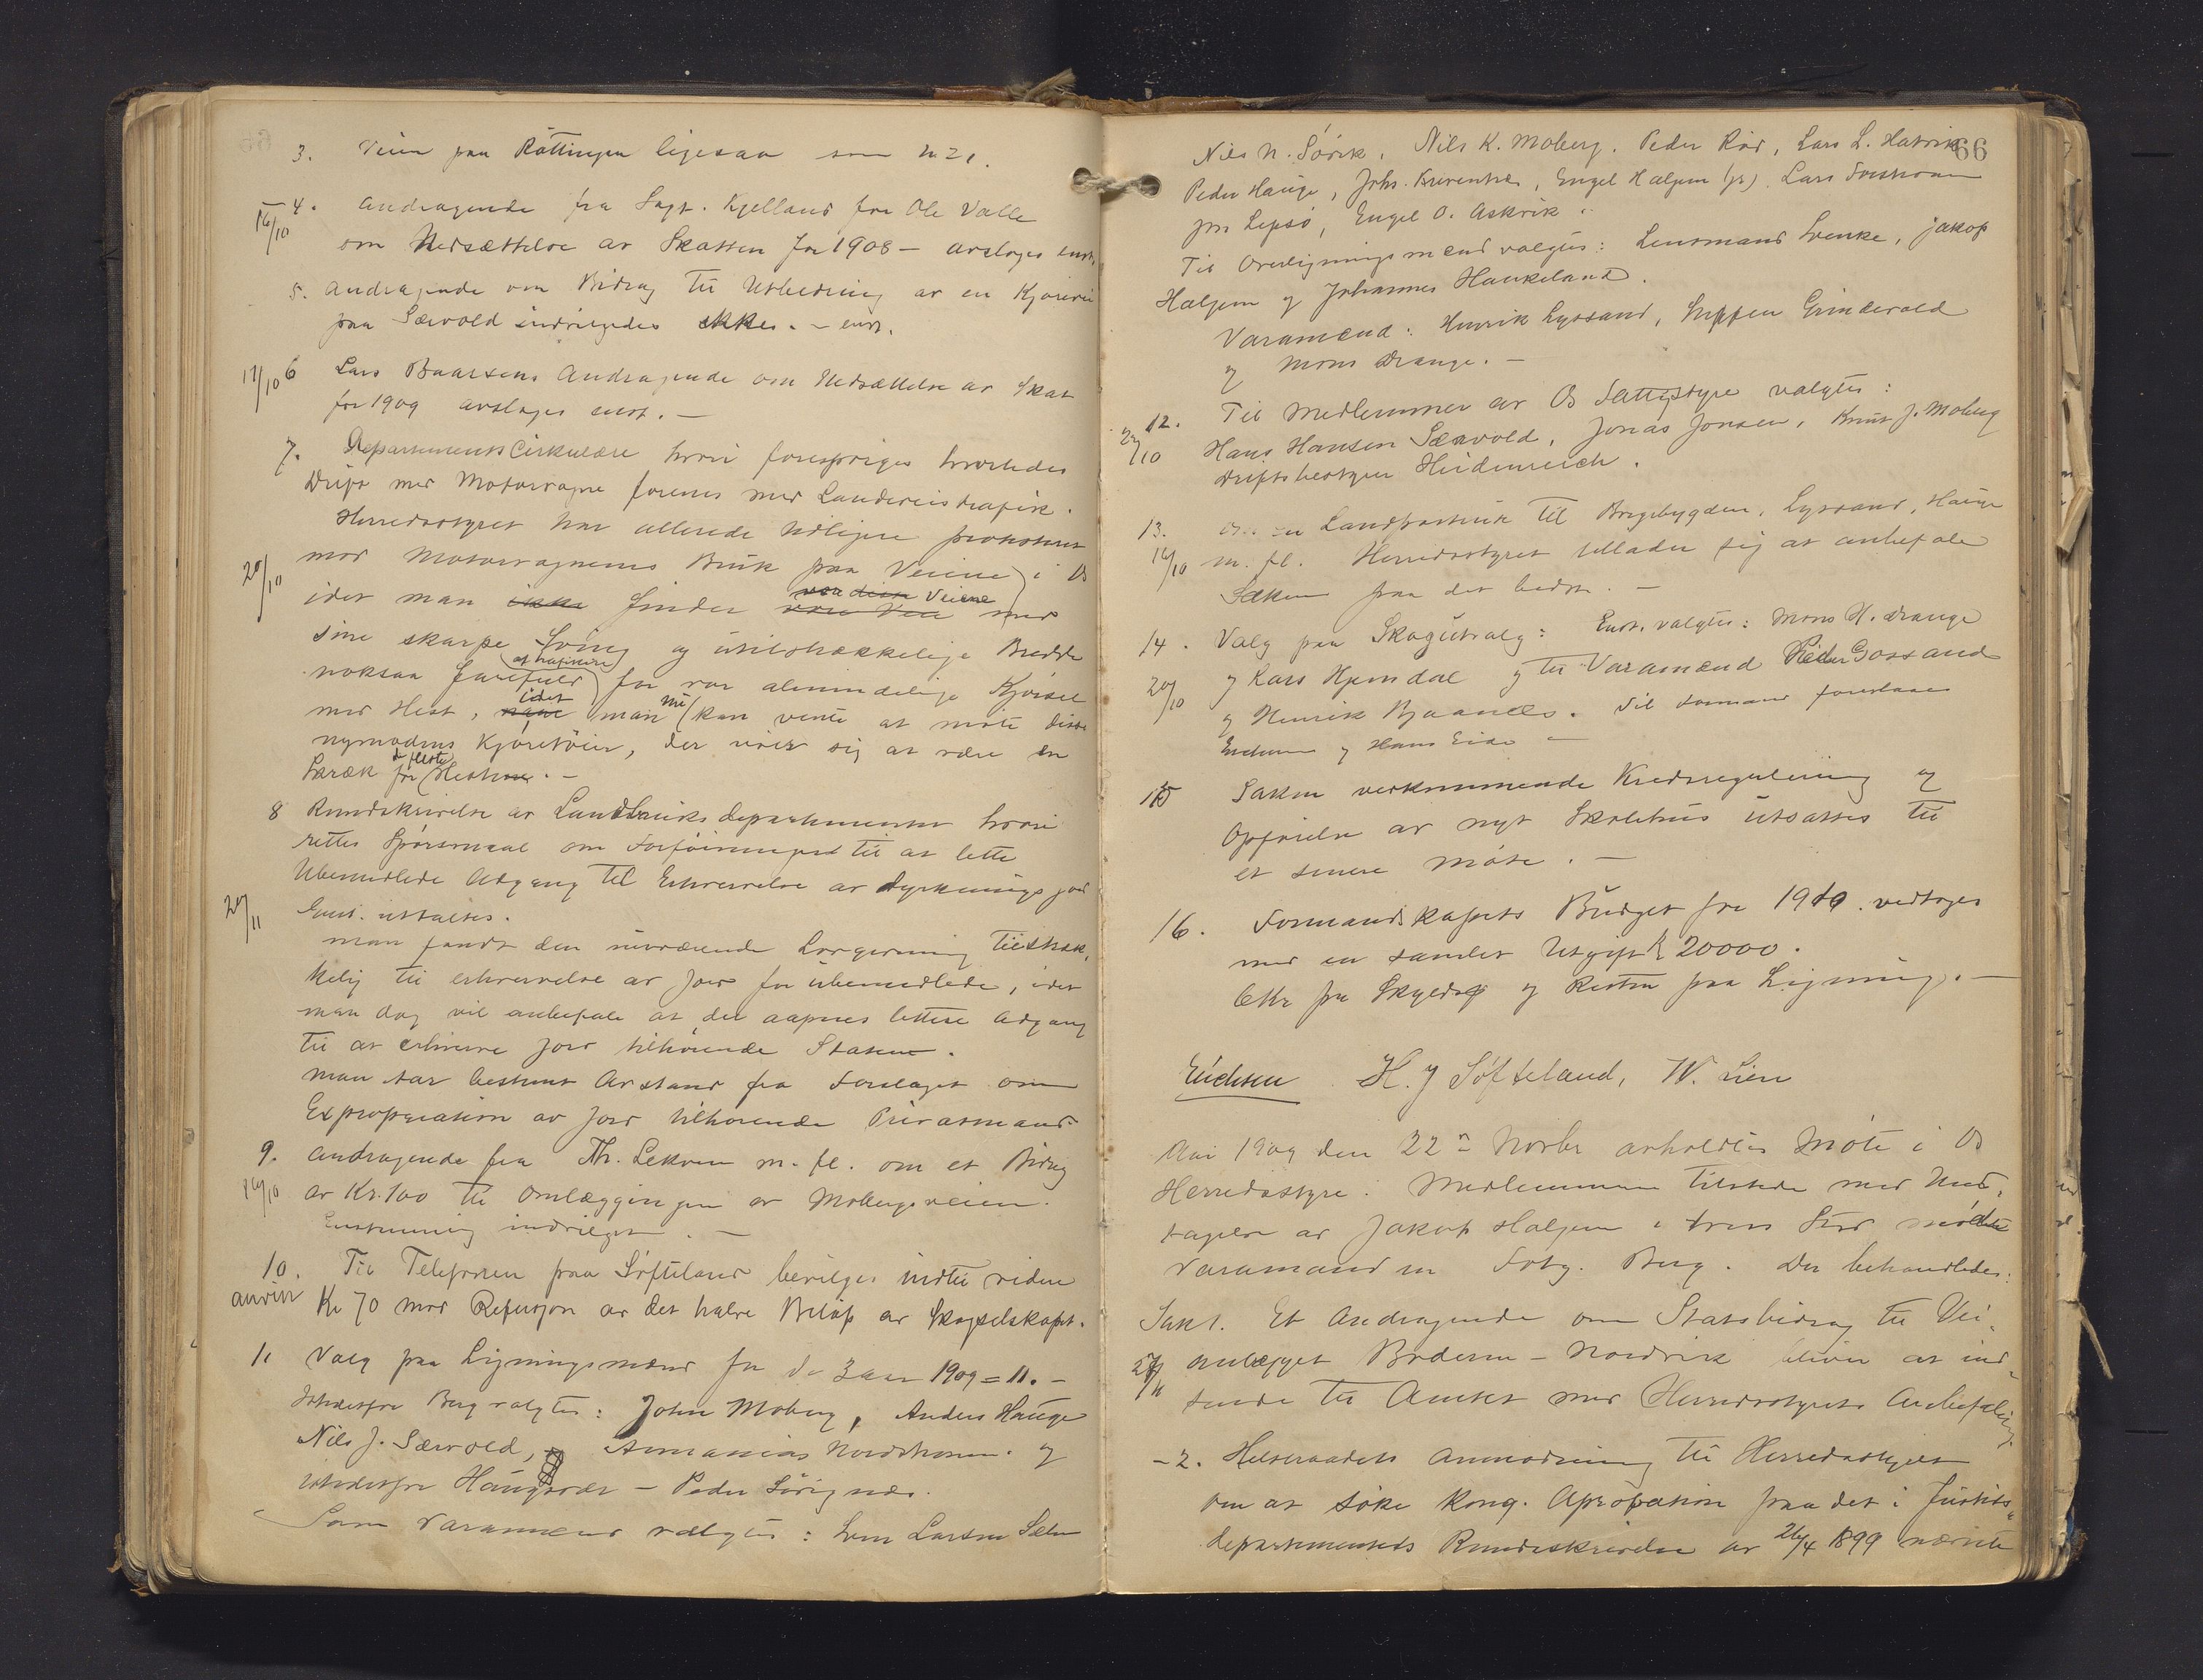 3. Veien paa Røttingen ligesaa som No 21.
16/10 4. Andragende fra Sagf. Kjelland for Ole Valle
om Nedsættelse av Skatten for 1908 – avslages enst.
5. Andragende om Bidrag til Utbedring av en Kjørevei
paa Særvold indvilgedes ikke. – enst.
17/10 6 Lars Baarsens Andragende om Nedsættelse av Skat
for 1909 avslages enst. –
7. Departements Cirkulære hvori forespørges hvorledes
Drift med Motorvogne forenes med Landeveistrafik.
Herredsstyret har allerede tidligere protestert
mod Motorvognenes Bruk paa Veiene i Os
20/10
idet man ikke finder vore Veie med
voa disse Veiene
sine skarpe Sving og utilstrækkelige Bredde
noksaa farefuld for vor almindelige Kjørsel
at trafikere
med Hest, naar man kan vente at møte disse
idet nu
nymodens Kjøretøier, der viser sig at være en
Skræk for Hestene. –
de fleste
8 Rundskrivelse av Landbruksdepartementet hvori
rettes Spørsmaal om Forføininger til at lette
Ubemidlede Adgang til Erhvervelse av Dyrkningsjord
20/11 Enst. uttaltes.
man fandt den nuværende Lovgivning tilstræk-
kelig til erhvervelse av Jord for ubemedlede, idet
man dog vil anbefale at der aapnes lettere Adgang
til at erhverve Jord tilhørende Staten.
Man tar bestemt Avstand fra Forslaget om
Expropriation av Jord tilhørende Privatmand.
9. Andragende fra Th. Lekven m. fl. om et Bidrag
16/10 av Kr. 100 til Omlæggingen av Mobergsveien.
Enstemmig indvilget. –
10. Til Telefonen paa Søfteland bevilges indtil videre
anvist Kr 70 mod Refusjon av det halve Beløp av Skogselskapet.
11 Valg paa Ligningsmænd for de 3 aar 1909 = 11. –
Istedetfor Berg valgtes: John Moberg, Anders Hauge
Nils J. Særvold, Annanias Nordstrønen. og
istedetfor Haugsvær – Peder Sørignæs.
Som Varamænd valgtes: Sven Larsen Sælen
66
Nils N. Søvik, Nils K. Moberg. Peder Rød, Lars L. Hatvik
Peder Hauge, Johs. Kuventræ, Engel Haljem (yr). Lars
Jon Lepsø, Engel O. Askvik.
Til Overligningsmænd valgtes: Lensmand Svenke, Jakop
Haljem og Johannes Haukeland.
Varamænd: Henrik Lyssand, Steffen Grindevold
og Mons Drange. –
12. Til Medlemmer av Os Sættestyre valgtes:
27/10 Hans Hansen Særvold, Jonas Jonsen, Knut J. Moberg
Driftsbestyrer Heidenreich.
13. Landpostrute til Bregebygden, Lyssand, Hauge
16/10 m. fl. Herredsstyret tillader sig at anbefale
Saken paa det bedste. –
14. Valg paa Skogutvalg: Enst. valgtes: Mons H. Drange
20/10 og Lars Hjemdal og til Varamænd Peder Gaassand
og Henrik Bjaanes. Til Formand foreslaaes
Erichsen og Hans Eide –
15 Saken vedkommende Kredsregulering og
Opførelse av nyt Skolehus utsattes til
et senere Møte. –
16. Formandskapets Budget for 1910 vedtages
med en samlet Utgift k 20000.
6 Kr pr Skyldm og Resten paa Ligning. –
Erichsen H. J Søfteland, N. Lien
Aar 1909 den 22n Novbr avholdtes Møte i Os
Herredsstyre. Medlemmene tilstede med Und-
tagelse av Jakop Haljem i hvis Sted mødte
Varamand Fabg. Berg. Der behandledes:
Sak 1. Et Andragende om Statsbidrag til Vei-
27/11 anlægget Bødern – Nordvik bliver at ind-
sende til Amtet med Herredsstyrets Anbefaling.
– 2. Helseraadets Anmodning til Herredsstyret
om at søke Kong. Aprobation paa det i Justits-
departementets Rundskrivelse av 26/4 1899 nævnte